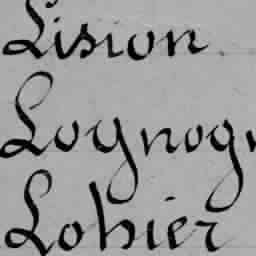 Lision
Loynogr
Lohier